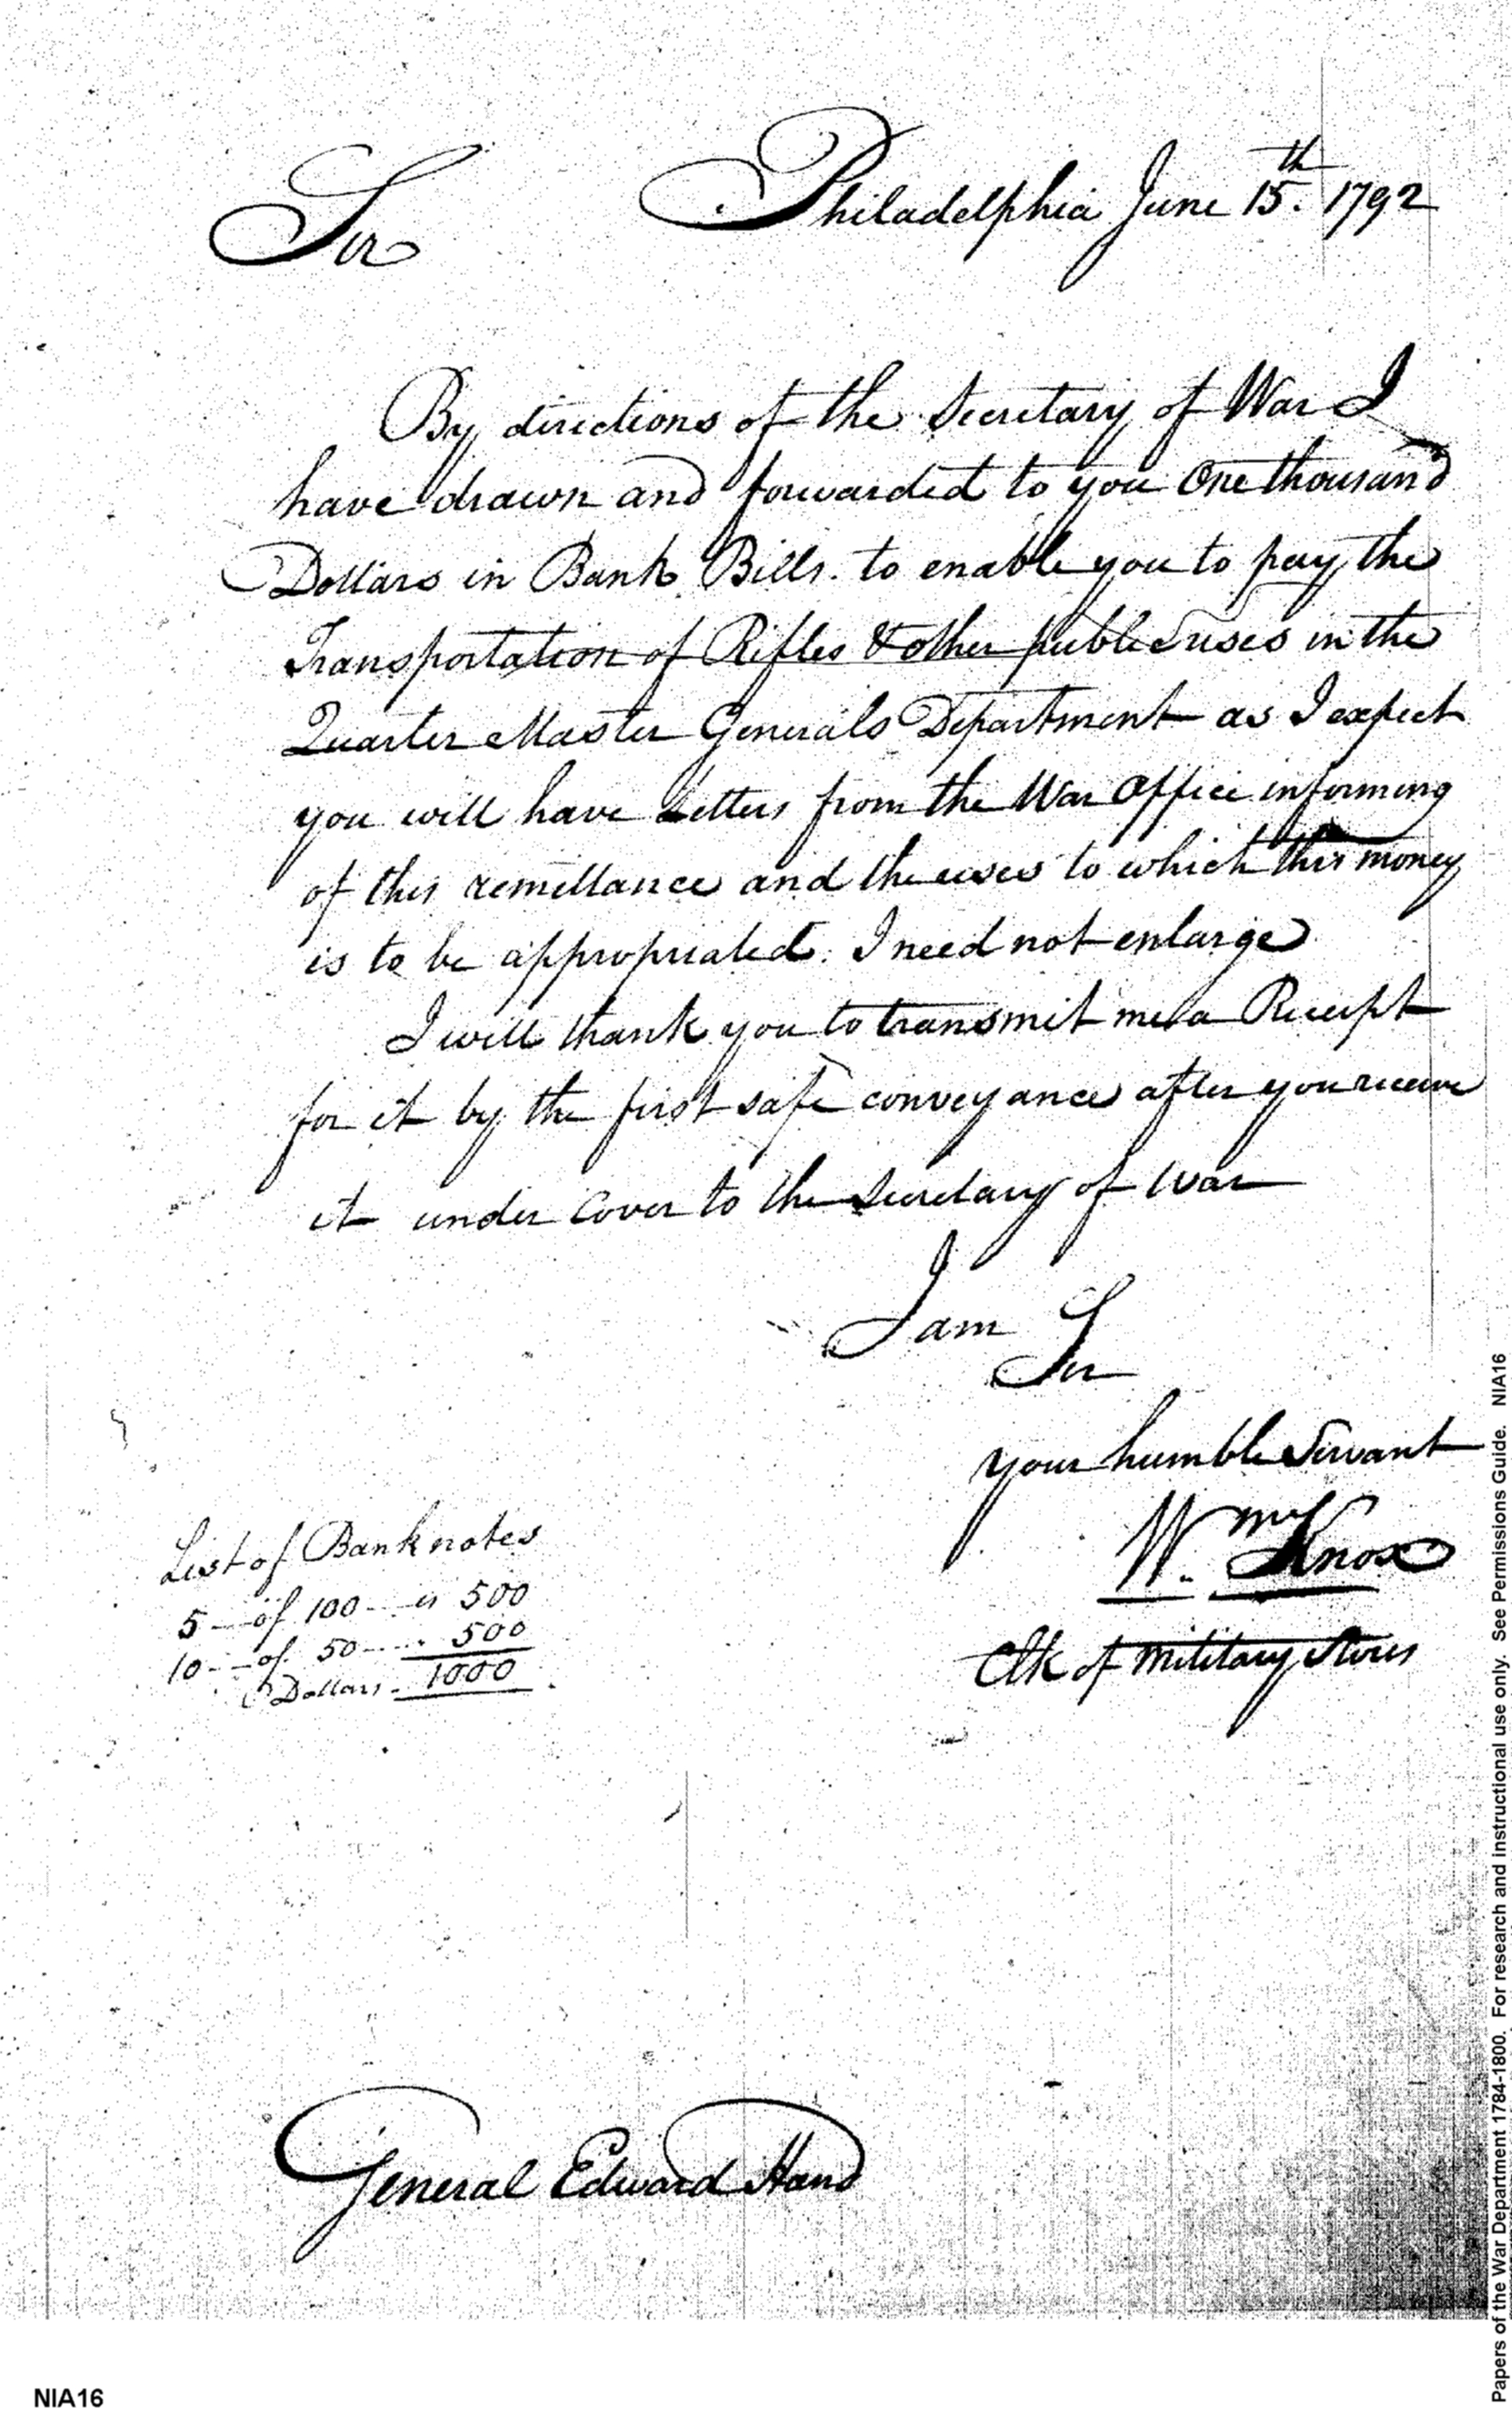 Philadelphia June 15th. 1792
Sir
By directions of the Secretary of War I
have drawn and forwarded to you One thousand
Dollars in Bank Bills. to enable you to pay the
Transportation of Rifles & other public uses in the
Quarter Master Generals Department as I expect
you will have Letters from the War Office informing
of this remittance and the uses to which this money
is to be appropriated. I need not enlarge
I will thank you to transmit me a Receipt
for it by the first safe conveyance after you receive
it under Cover to the Secretary of War
I am
Sir
your humble Servant
Wm. Knox
Clk of Military Stores
List of Bank notes
5 of 100 is 500
10 of 50 500
Dollars 1000
General Edward Hand
NIA16
Papers of the War Department 1784-1800. For research and instructional use only. See Permissions Guide. NIA16